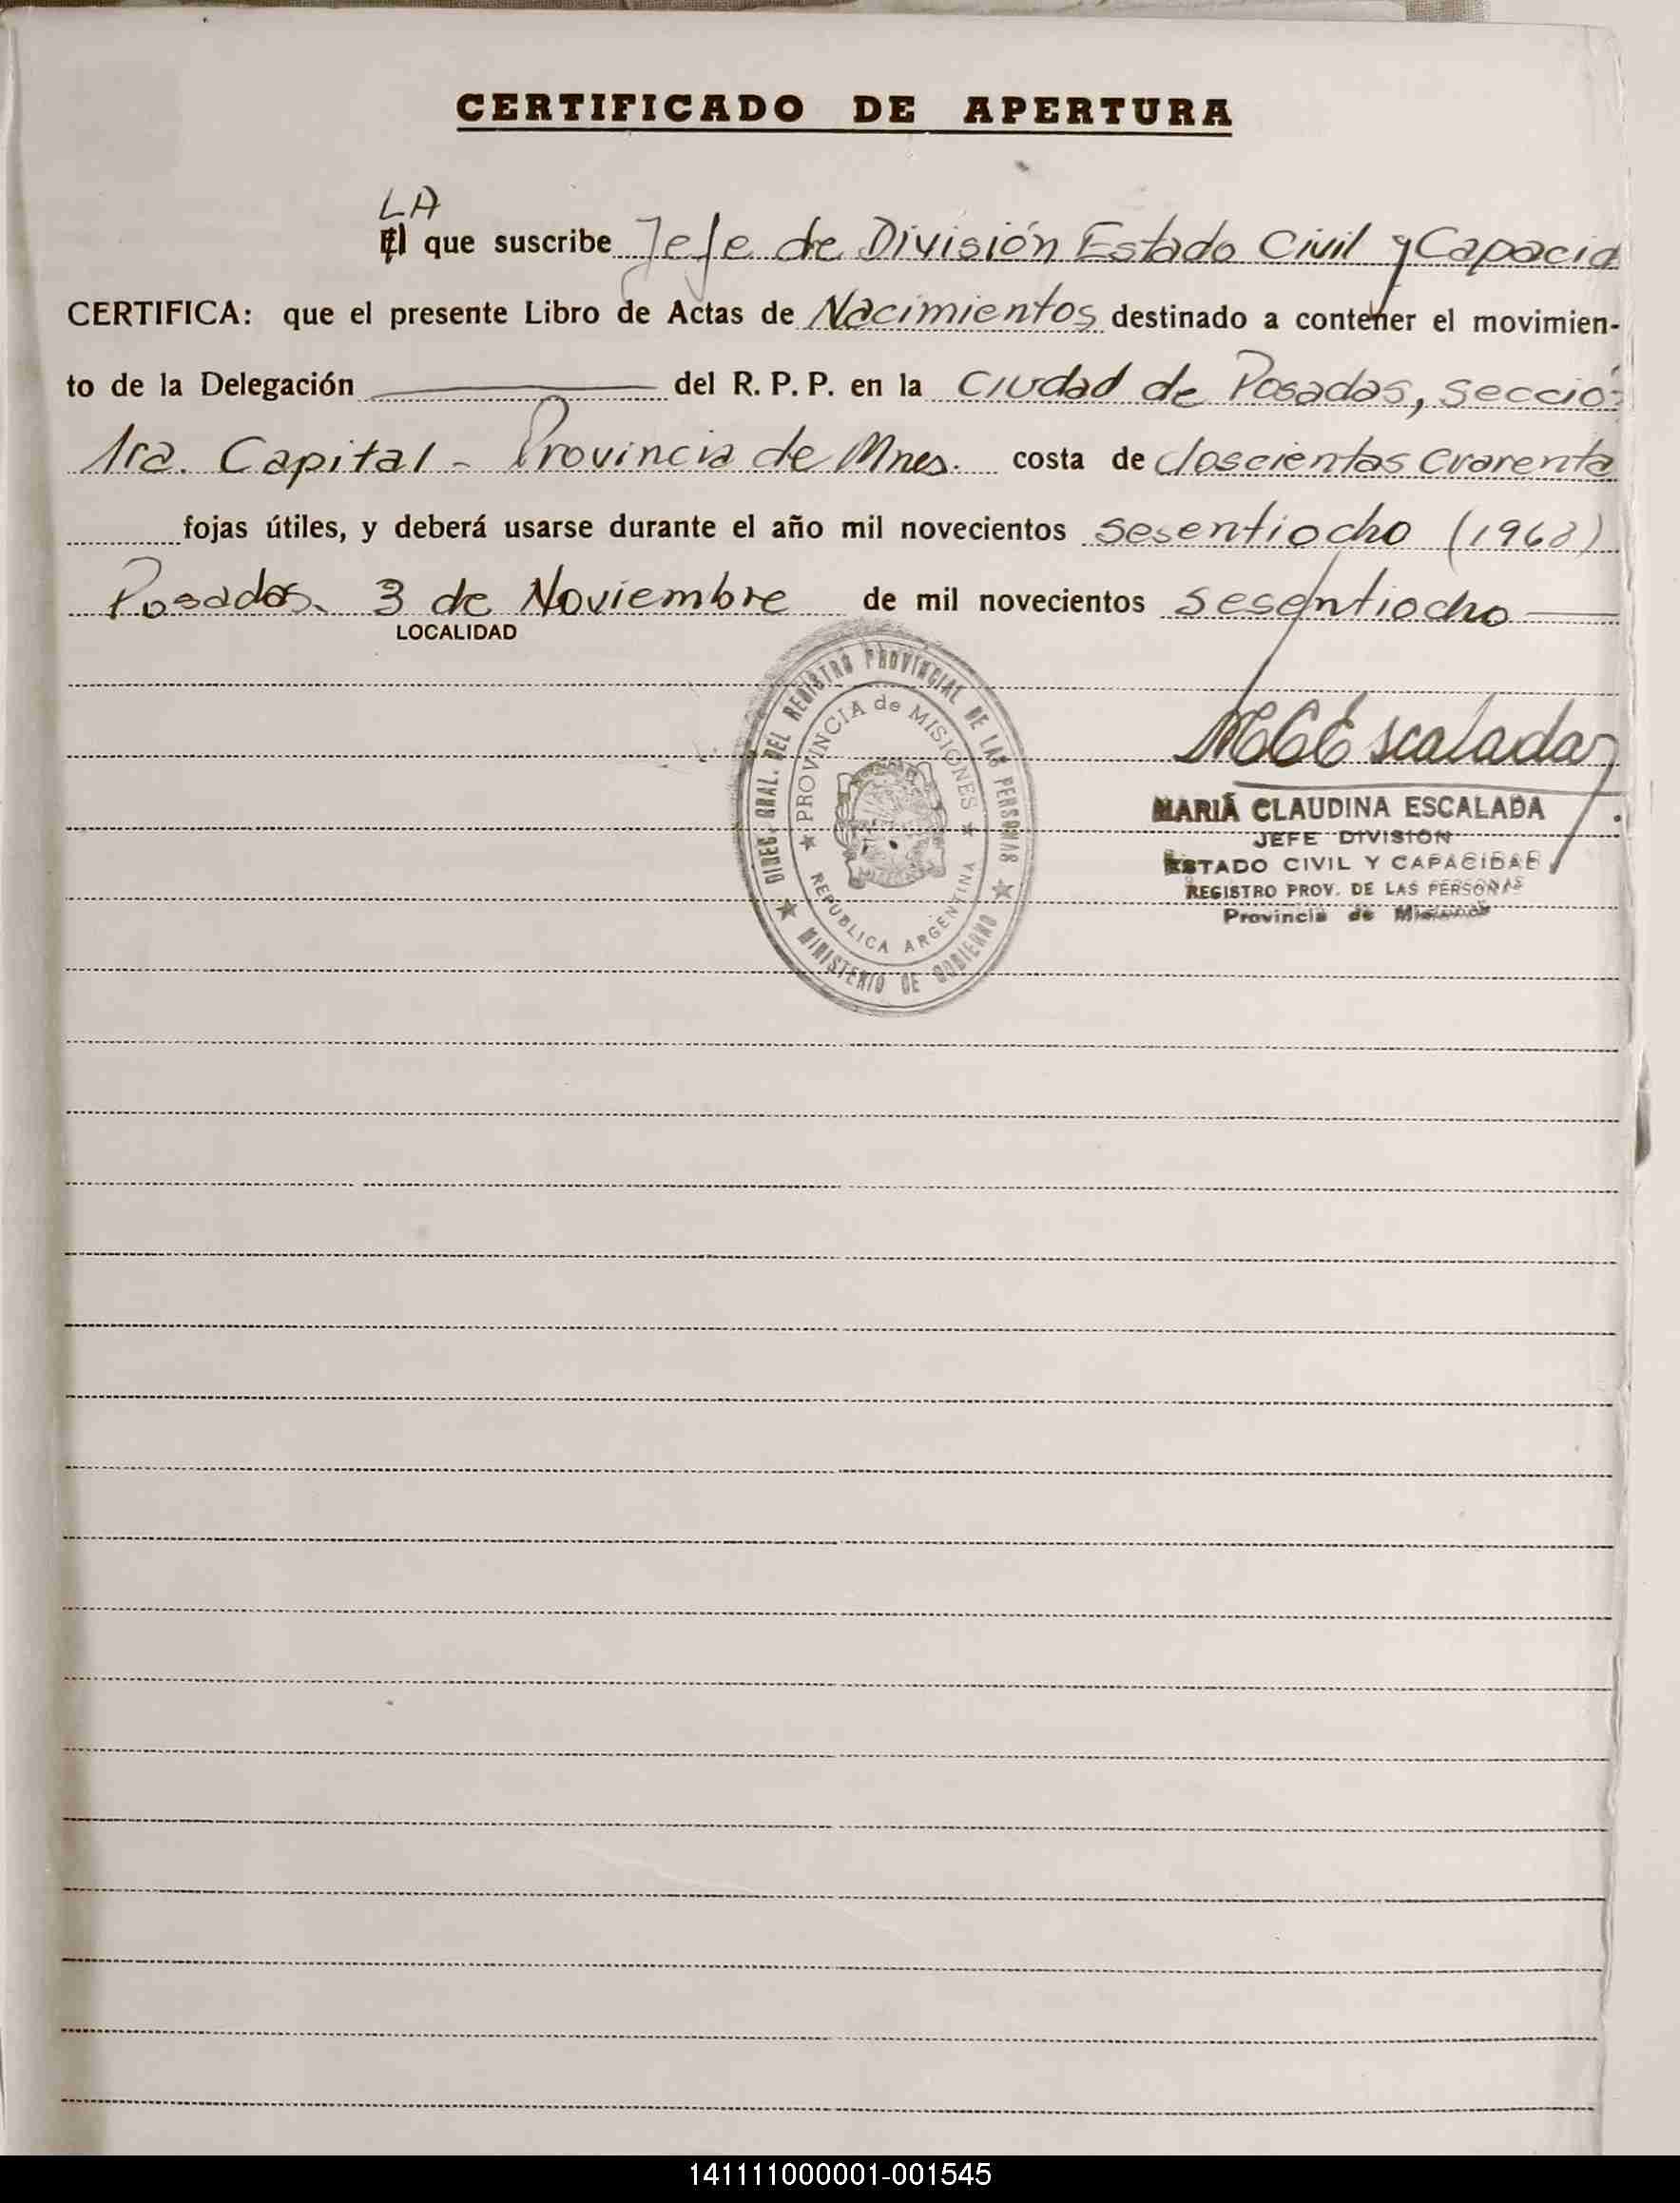 CERTIFICADO DE APERTURA
LA
El que suscribe Jefe de División Estado Civil y Capacid
CERTIFICA: que el presente Libro de Actas de Nacimientos destinado a contener el movimien-
to de la Delegación del R. P. P. en la Ciudad de Posadas, secció
1ra. Capital - Provincia de Mnes. costa de doscientas cuarenta
fojas útiles, y deberá usarse durante el año mil novecientos sesentiocho (1968)
Posadas, 3 de Noviembre de mil novecientos sesentiocho
LOCALIDAD
DIREC. GRAL. DEL REGISTRO PROVINCIAL DE LAS PERSONAS
★ MINISTERIO DE GOBIERNO ★
★ PROVINCIA de MISIONES ★
REPUBLICA ARGENTINA
MCEscalada
MARIA CLAUDINA ESCALADA
JEFE DIVISION
ESTADO CIVIL Y CAPACIDAD
REGISTRO PROV. DE LAS PERSONAS
Provincia de Misiones
141111000001-001545